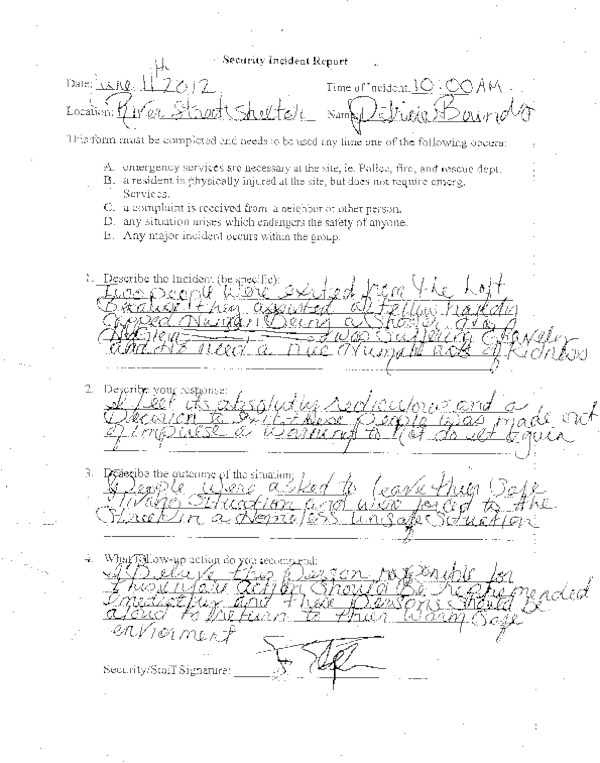 Security Incident Report
Date: June 11th 2012 Time of Incident 10:00AM
Location: River Street Shelter Name: Patricia
This form must be completed and needs to be used any time one of the following occurs:
A. emergency services are necessary at the site, ie. Police, fire, and rescue dept.
B. a resident is physically injured at the site, but does not require emerg.
Services.
C. a complaint is received from a neighbor or other person.
D. any situation arises which endangers the safety of anyone.
E. Any major incident occurs within the group.
1. Describe the Incident (be specific):
Two people were exited from the Loft
Because they assisted a fellow
Human Being a
was suffering
and need a True Human acts of Kidness
2. Describe your response:
I feel its absolutly rediculous and a
Decision to exit these people was made out
of impulse a warning to not do it again
3. Describe the outcome of the situation:
People were asked to leave thier Safe
living Situation and were forced to the
Street in a Homeless unsafe Situation
4. What follow-up action do you recommend:
I Believe this Person responsible for
this action Should Be
and these Persons Should be
to Return to thier warm Safe
enviorment
Security/Staff Signature: